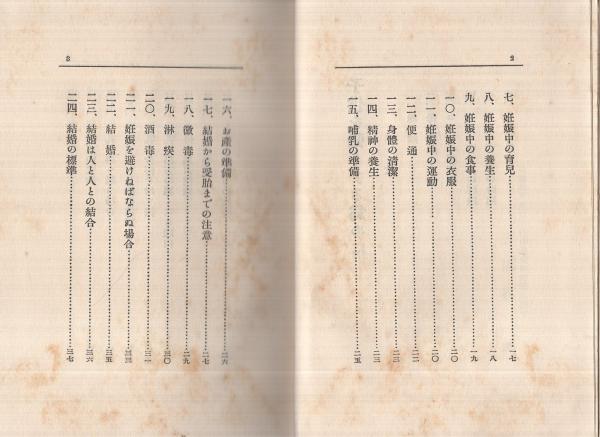 2
七、妊娠中の育兒……一七
八、妊娠中の養生……一八
九、妊娠中の食事……一九
一〇、妊娠中の衣服……二〇
一一、妊娠中の運動……二〇
一二、便通……二二
一三、身體の清潔……二三
一四、精神の養生……二三
一五、哺乳の準備……二五
3
一六、お產の準備……二六
一七、結婚から受胎までの注意……二七
一八、黴毒……二九
一九、淋疾……三〇
二〇、酒毒……三一
二一、妊娠を避けねばならぬ場合……三三
二二、結婚……三五
二三、結婚は人と人との結合……三六
二四、結婚の標準……三七